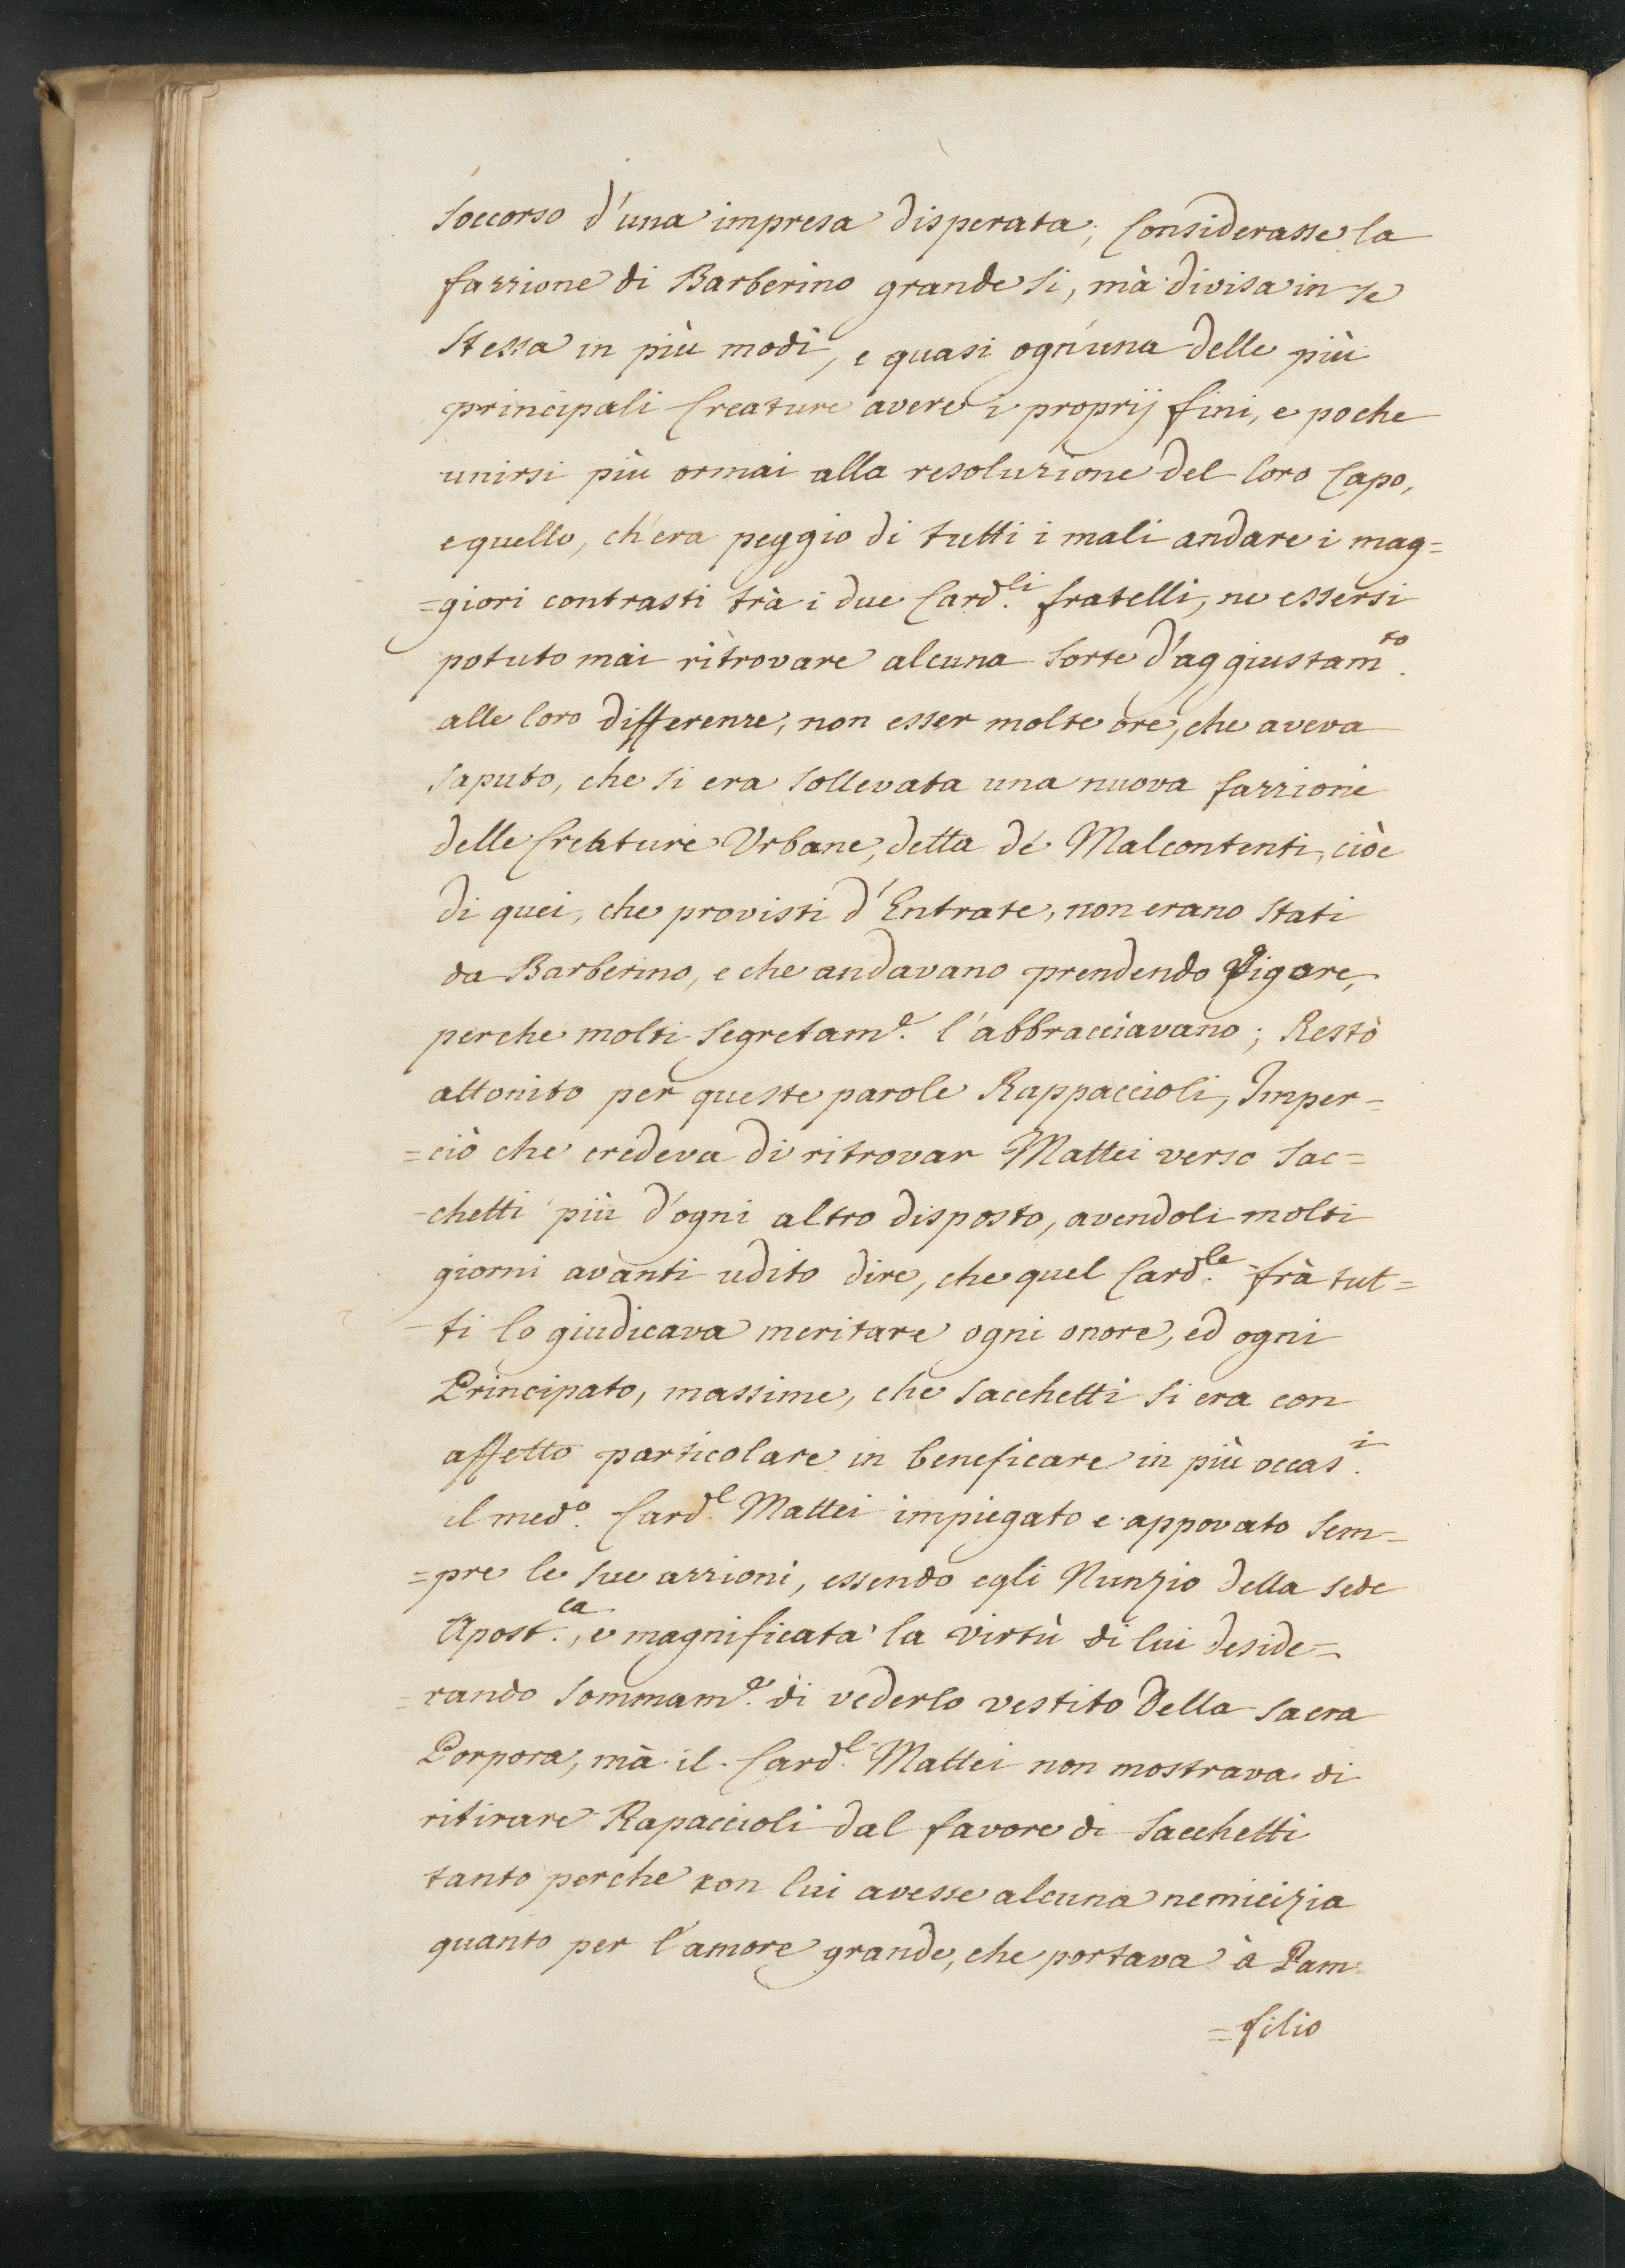 soccorso d'una impresa disperata; Considerasse la
fazzione di Barberino grande si, mà divisa in se
stessa in più modi, e quasi ogn'una delle più
principali Creature avere i proprij fini, e poche
unirsi più ormai alla resoluzione del loro Capo,
e quello, ch'era peggio di tutti i mali andare i mag=
=giori contrasti trà i due Card.li fratelli, ne essersi
potuto mai ritrovare alcuna sorte d'aggiustam.to
alle loro differenze, non esser molte ore, che aveva
saputo, che si era sollevata una nuova fazzione
delle Creature Urbane, detta de' Malcontenti, cioè
di quei, che provisti d'Entrate, non erano stati
da Barberino, e che andavano prendendo Vigore,
perche molti segretam.e l'abbracciavano; Restò
attonito per queste parole Rappaccioli, Imper=
=ciò che credeva di ritrovar Mattei verso Sac=
-chetti più d'ogni altro disposto, avendoli molti
giorni avanti udito dire, che quel Card.le frà tut=
-ti lo giudicava meritare ogni onore, ed ogni
Principato, massime, che Sacchetti si era con
affetto particolare in beneficare in più occas.i
il med.o Card.l Mattei impiegato e appovato sem=
=pre le sue azzioni, essendo egli Nunzio della Sede
Apost.ca, e magnificata la virtù di lui deside=
=rando sommam.e di vederlo vestito della sacra
Porpora, mà il Card.l Mattei non mostrava di
ritirare Rapaccioli dal favore di Sacchetti
tanto perche con lui avesse alcuna nemicizia
quanto per l'amore grande, che portava à Pam
=filio